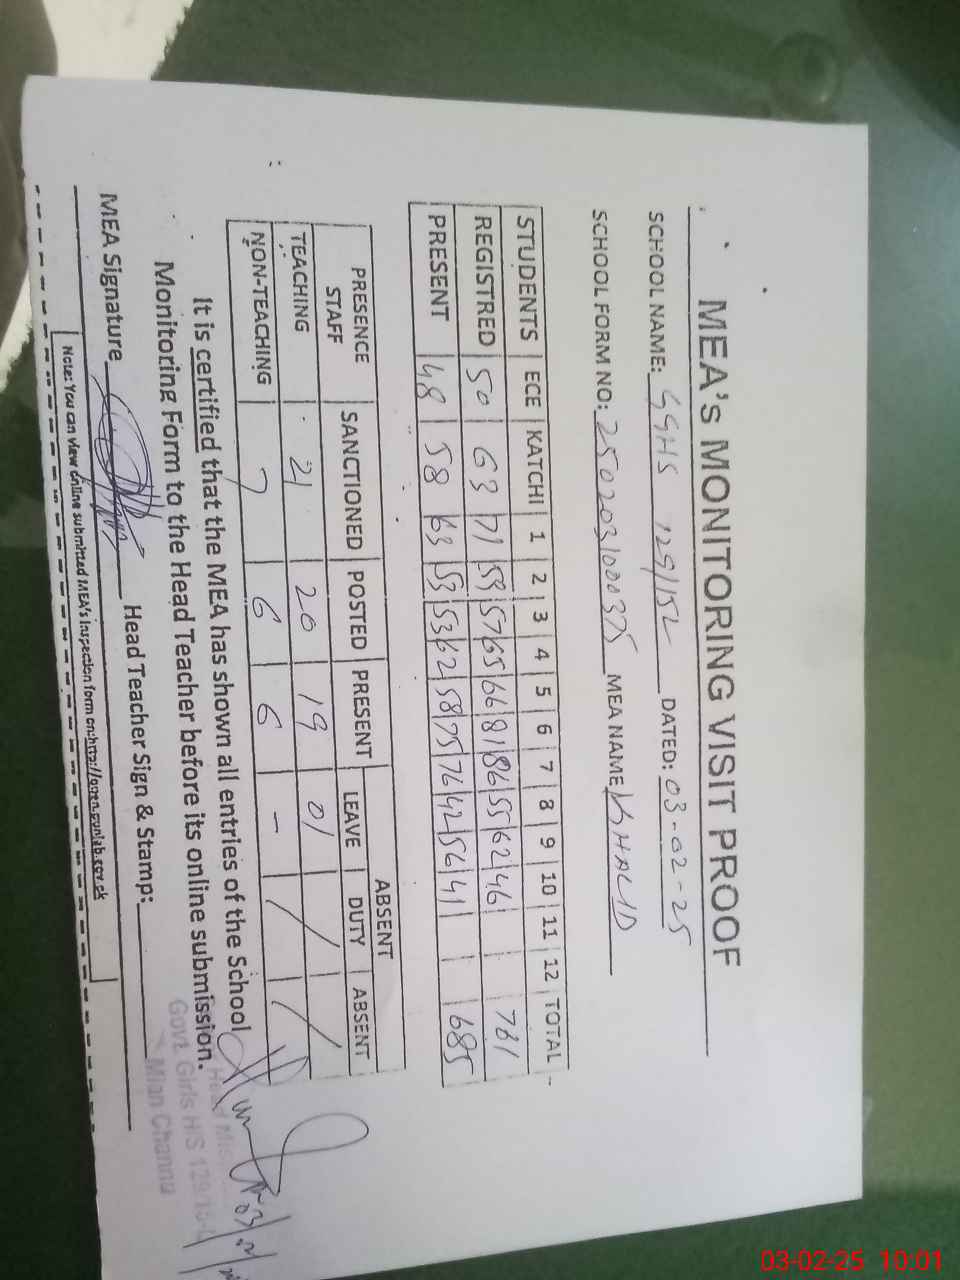 MEA's MONITORING VISIT PROOF
SCHOOL NAME: GGHS 129/15L DATED: 03-02-25
SCHOOL FORM NO: 2502031000375 MEA NAME KHALID
STUDENTS ECE KATCHI 1 2 3 4 5 6 7 8 9 10 11 12 TOTAL
REGISTRED 50 63 71 59 57 65 66 81 86 55 62 46 761
PRESENT 48 58 63 53 53 62 58 75 76 42 56 41 685
PRESENCE STAFF SANCTIONED POSTED PRESENT ABSENT
LEAVE DUTY ABSENT
TEACHING 21 20 19 01
NON-TEACHING 7 6 6 -
It is certified that the MEA has shown all entries of the School
Monitoring Form to the Head Teacher before its online submission.
MEA Signature Head Teacher Sign & Stamp:
Govt. Girls H/S 129/15-L
Mian Channu
Note: You can view online submitted MEA's inspection form on:http://open.punjab.gov.pk
03-02-25 10:01